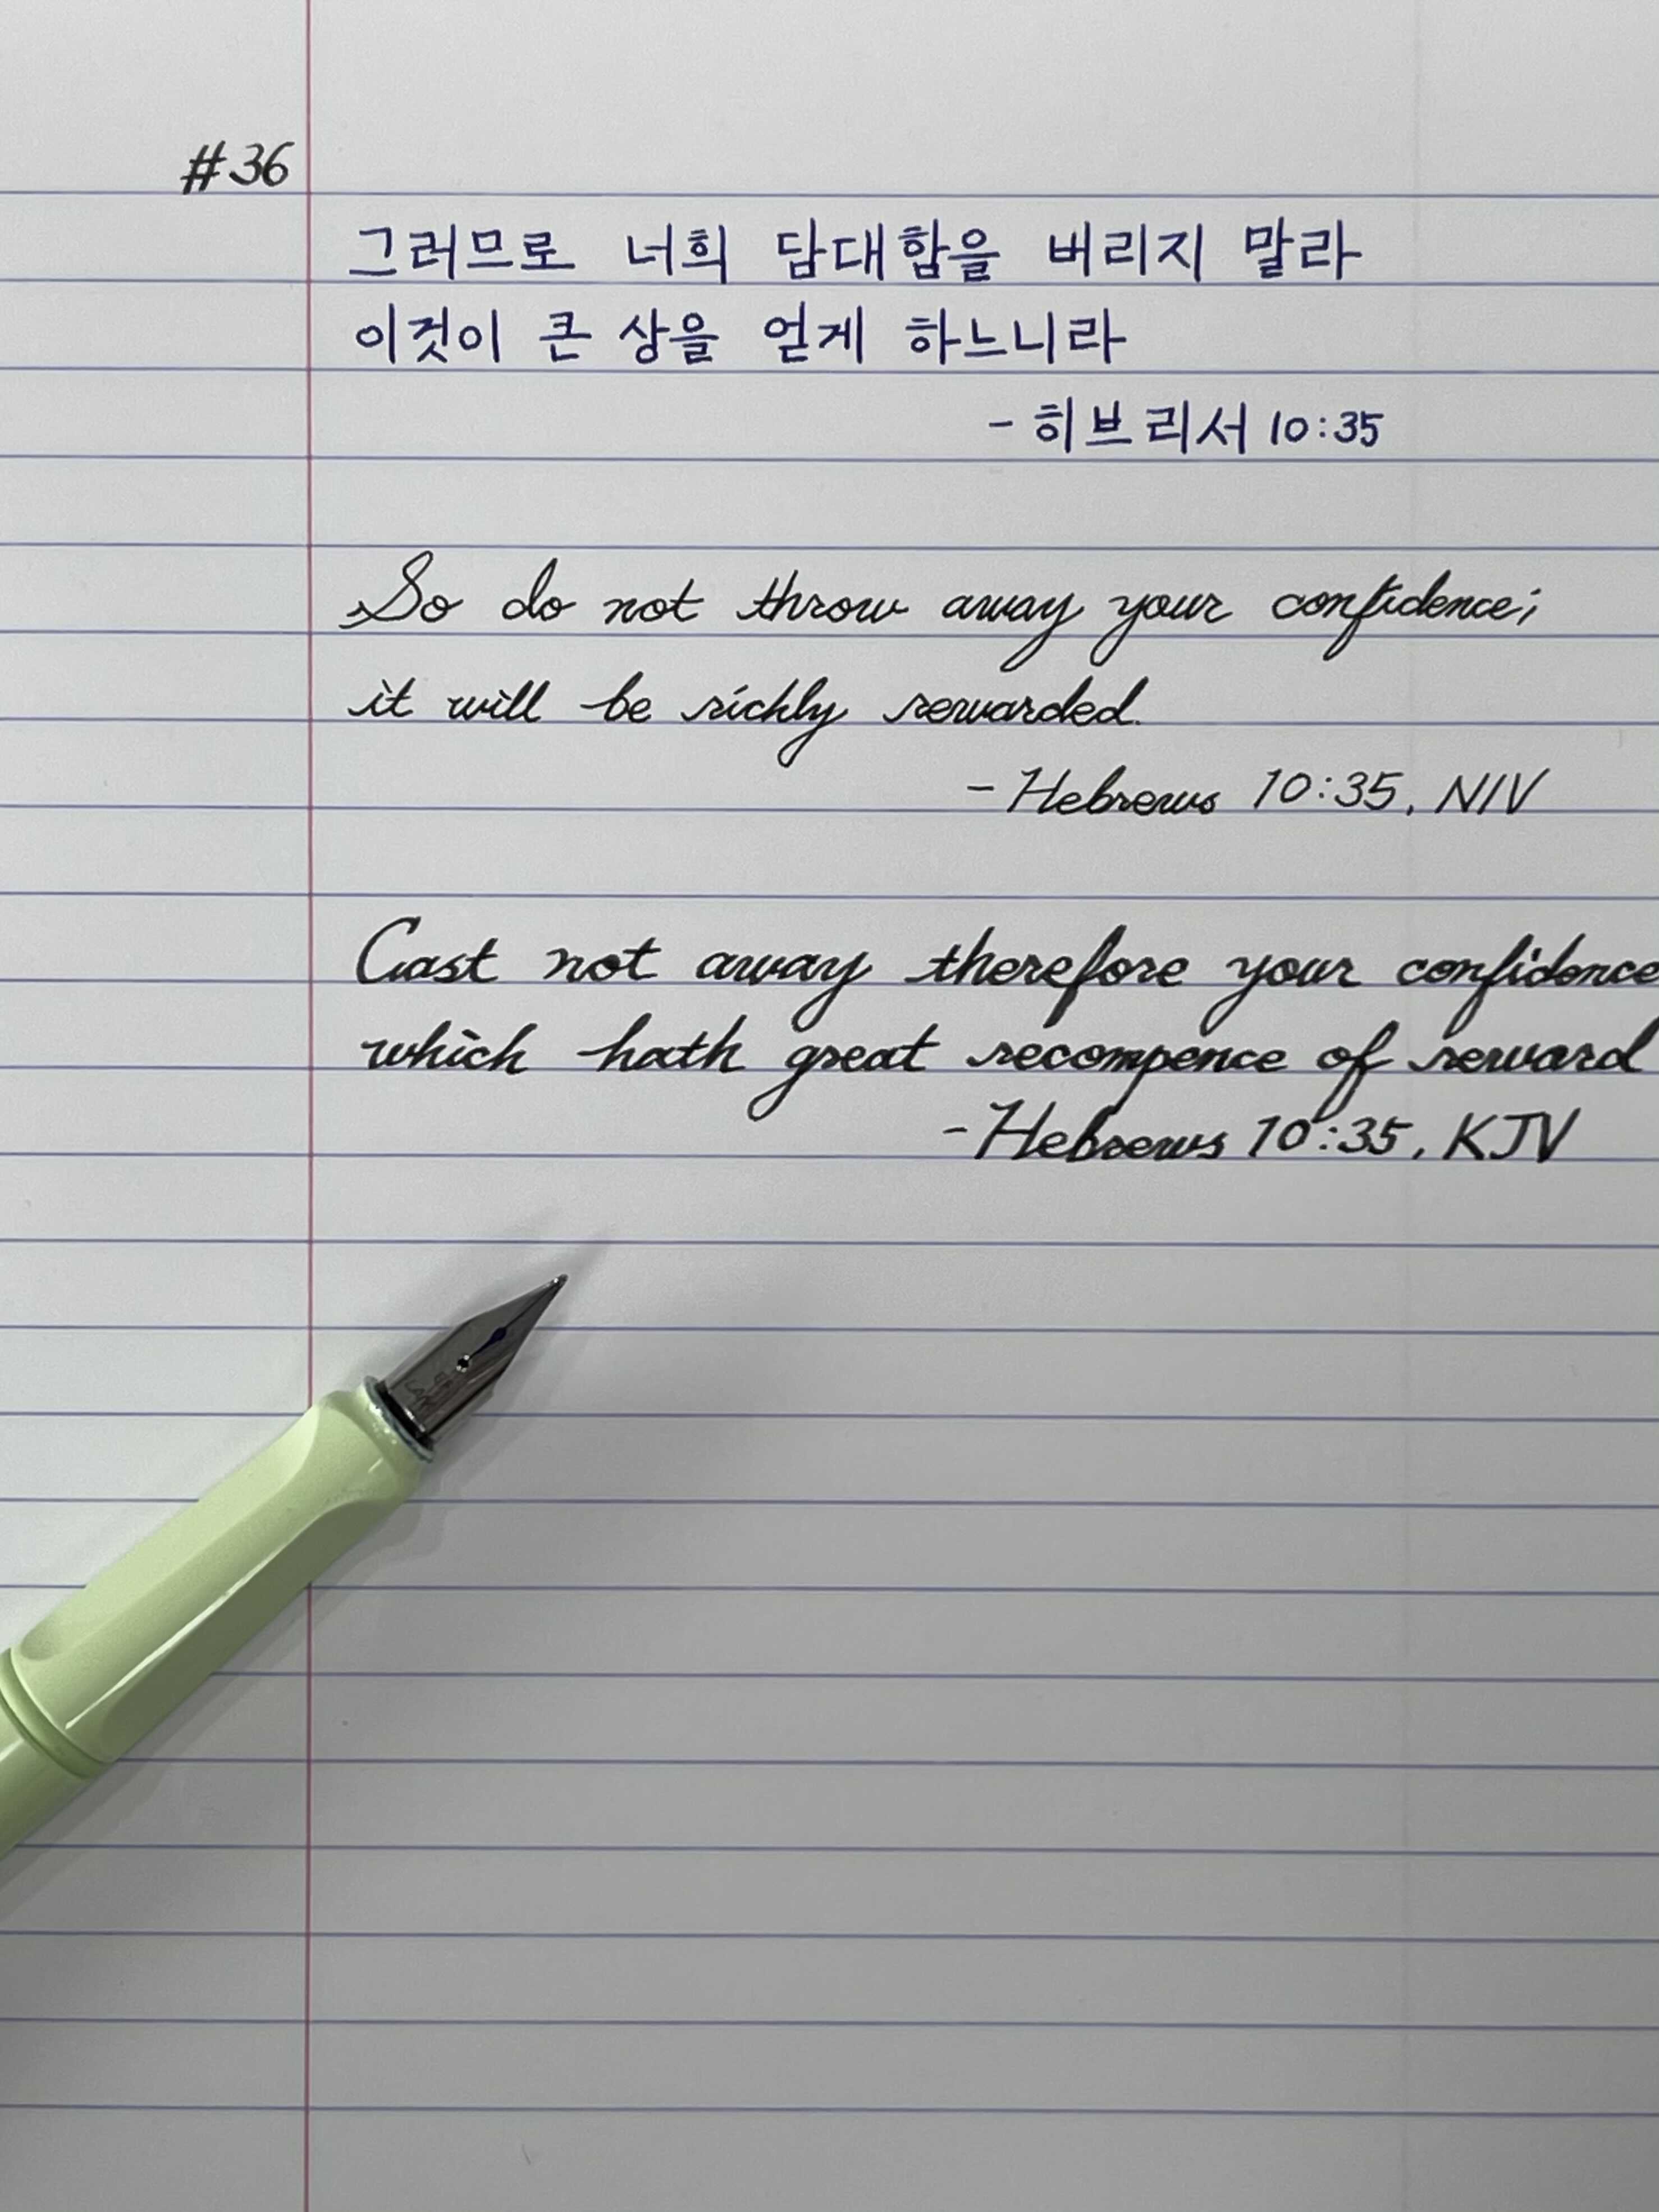 #36
그러므로 너희 담대함을 버리지 말라
이것이 큰 상을 얻게 하느니라
- 히브리서 10:35
So do not throw away your confidence;
it will be richly rewarded.
- Hebrews 10:35, NIV
Cast not away therefore your confidence
which hath great recompence of reward
- Hebrews 10:35, KJV